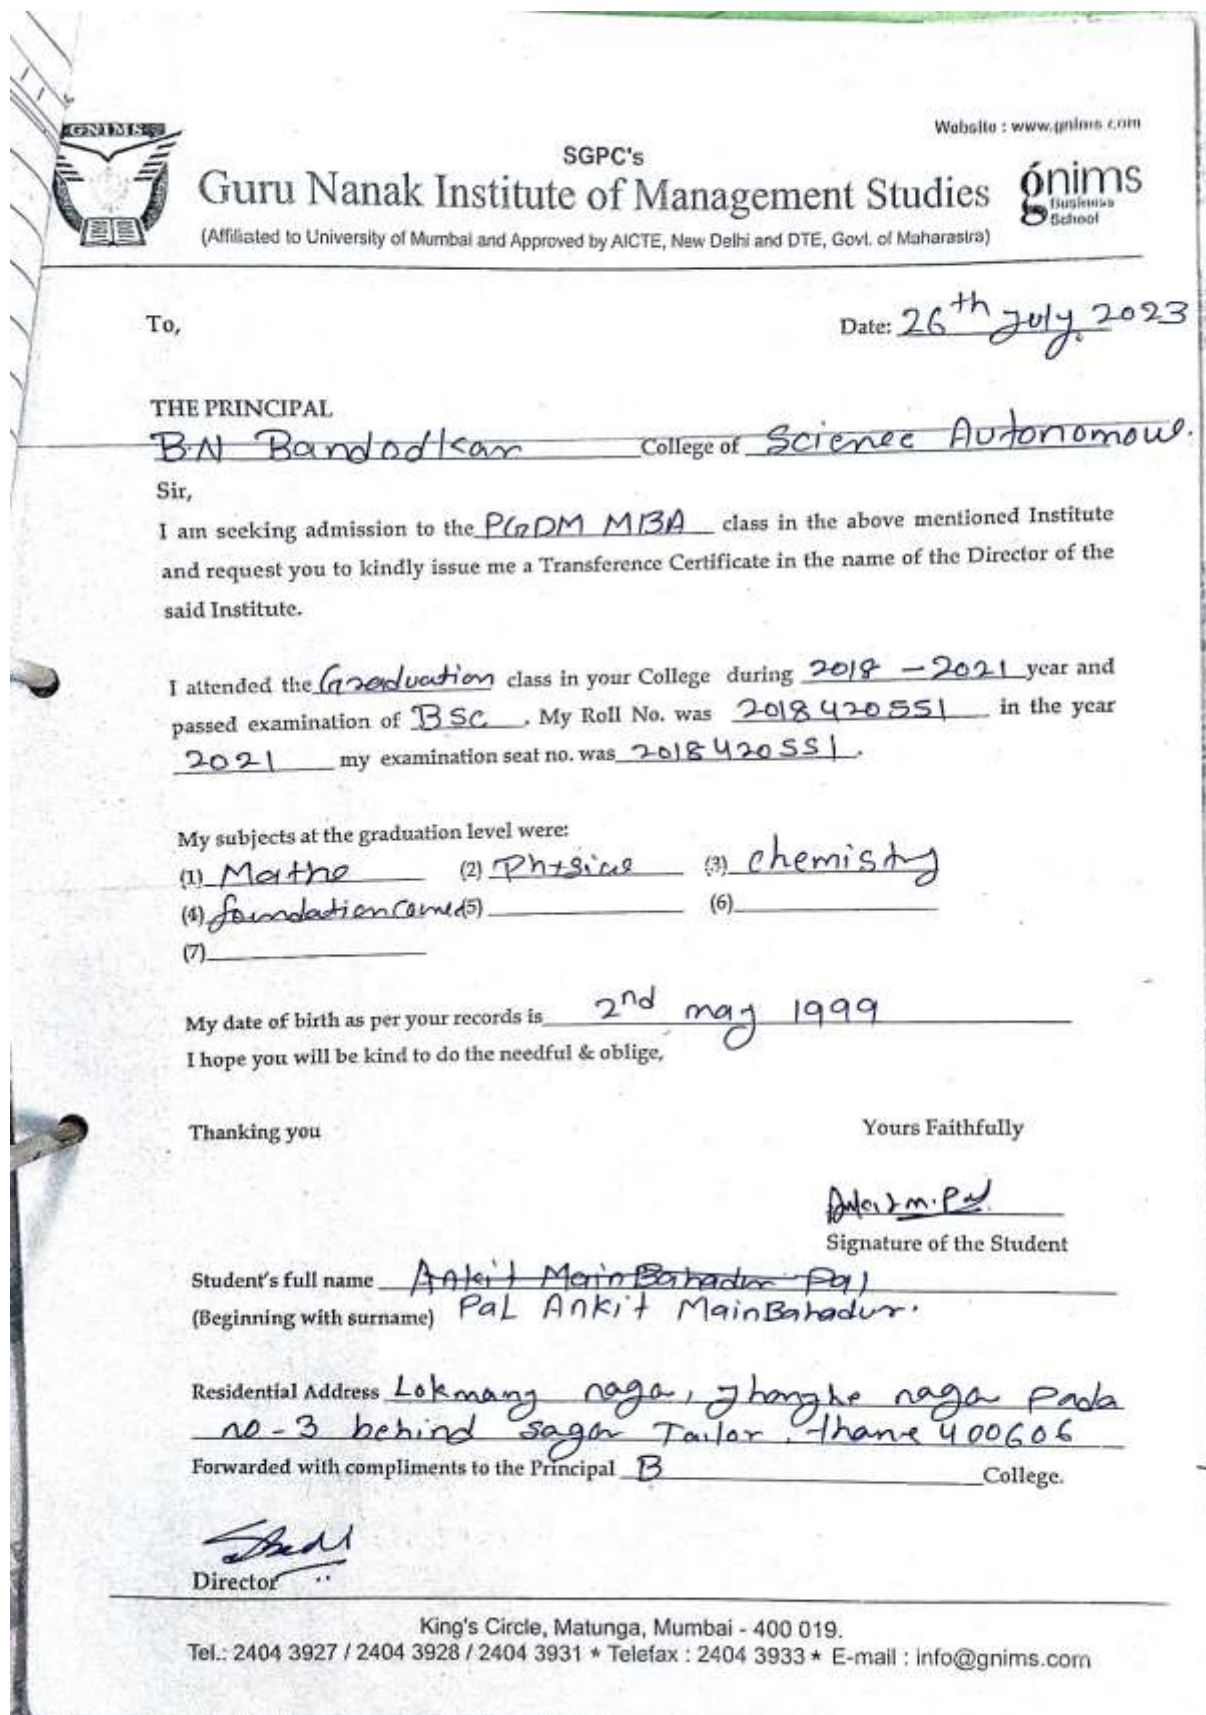 GNIMS
Website : www.gnims.com
SGPC's
Guru Nanak Institute of Management Studies
gnims
Business
School
(Affiliated to University of Mumbai and Approved by AICTE, New Delhi and DTE, Govt. of Maharastra)
To,
Date: 26th July, 2023
THE PRINCIPAL
B.N Bandodkar College of Science Autonomous.
Sir,
I am seeking admission to the PGDM MBA class in the above mentioned Institute
and request you to kindly issue me a Transference Certificate in the name of the Director of the
said Institute.
I attended the Graduation class in your College during 2018 - 2021 year and
passed examination of BSC . My Roll No. was 2018420551 in the year
2021 my examination seat no. was 2018420551.
My subjects at the graduation level were:
(1) Maths (2) Physics (3) chemistry
(4) foundation (5) (6)
(7)
My date of birth as per your records is 2nd may 1999
I hope you will be kind to do the needful & oblige,
Thanking you
Yours Faithfully
Ankit m. Pal
Signature of the Student
Student's full name Ankit MainBahadur Pal
(Beginning with surname) Pal Ankit MainBahadur.
Residential Address Lokmany naga, naga Pada
no-3 behind sagar Tailor, thane 400606
Forwarded with compliments to the Principal B College.
Director
King's Circle, Matunga, Mumbai - 400 019.
Tel.: 2404 3927 / 2404 3928 / 2404 3931 * Telefax : 2404 3933 * E-mail : info@gnims.com